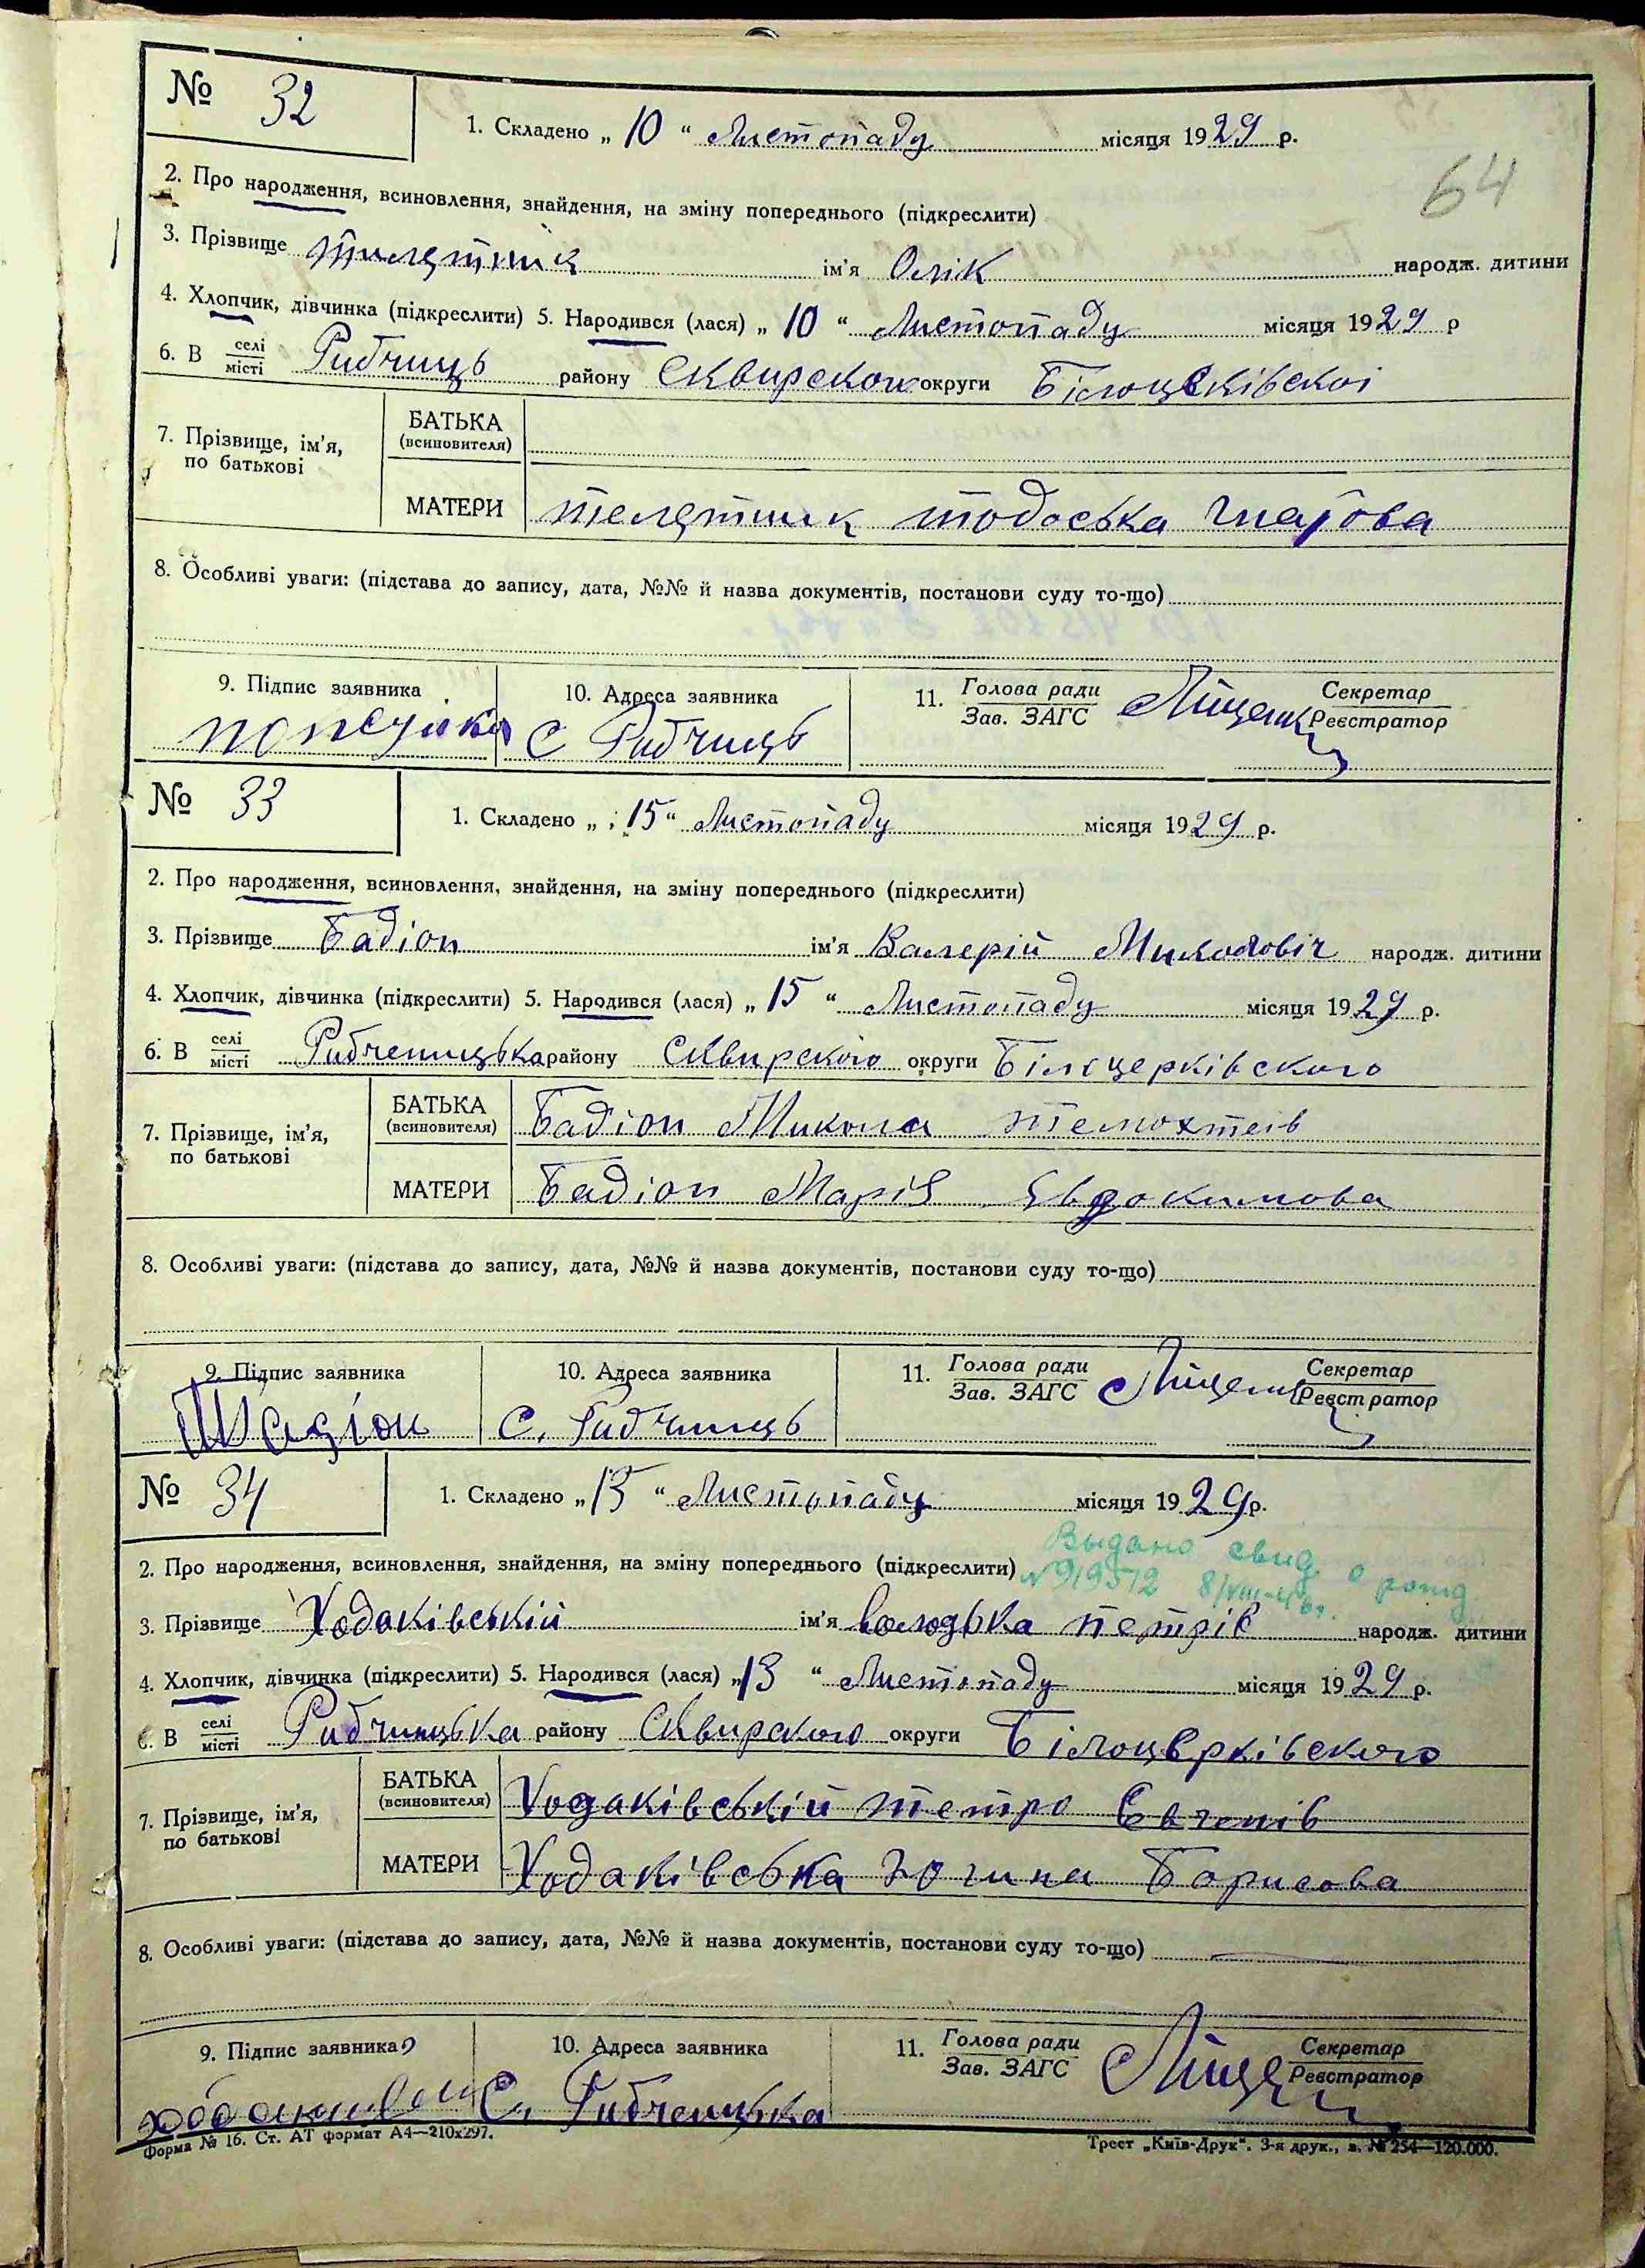 № 32
1. Складено „ 10 “ Листопаду місяця 1929 р.
64
2. Про народження, всиновлення, знайдення, на зміну попереднього (підкреслити)
3. Прізвище ім'я Олік народж. дитини
4. Хлопчик, дівчинка (підкреслити) 5. Народився (лася) „ 10 “ Листопаду місяця 1929 р
6. В селі місті Рибчинць району Сквирскои округи
7. Прізвище, ім'я, по батькові
БАТЬКА (всиновителя)
МАТЕРИ Телятник Тодоська
8. Особливі уваги: (підстава до запису, дата, №№ й назва документів, постанови суду то-що)
9. Підпис заявника 10. Адреса заявника 11. Голова ради Зав. ЗАГС Секретар Реєстратор
С Рибчинць
№ 33
1. Складено „ 15 “ Листопаду місяця 1929 р.
2. Про народження, всиновлення, знайдення, на зміну попереднього (підкреслити)
3. Прізвище Бадіон ім'я Валерій Миколовіч народж. дитини
4. Хлопчик, дівчинка (підкреслити) 5. Народився (лася) „ 15 “ Листопаду місяця 1929 р.
6. В селі місті району Сквирского округи Білоцерківского
7. Прізвище, ім'я, по батькові
БАТЬКА (всиновителя) Бадіон Микола
МАТЕРИ Бадіон Марія Євдокимова
8. Особливі уваги: (підстава до запису, дата, №№ й назва документів, постанови суду то-що)
9. Підпис заявника 10. Адреса заявника 11. Голова ради Зав. ЗАГС Секретар Реєстратор
С. Рибчинць
№ 34
1. Складено „ 13 “ Листопаду місяця 1929 р.
2. Про народження, всиновлення, знайдення, на зміну попереднього (підкреслити)
Выдано свид. о рожд
3. Прізвище Ходаківський ім'я Володька Петрів народж. дитини
4. Хлопчик, дівчинка (підкреслити) 5. Народився (лася) „ 13 “ Листопаду місяця 1929 р.
6. В селі місті Рибчинцька району Сквирского округи Білоцерківского
7. Прізвище, ім'я, по батькові
БАТЬКА (всиновителя) Ходаківській Петро Євгенів
МАТЕРИ Ходаківська Борисова
8. Особливі уваги: (підстава до запису, дата, №№ й назва документів, постанови суду то-що)
9. Підпис заявника 10. Адреса заявника 11. Голова ради Зав. ЗАГС Секретар Реєстратор
С.
Форма № 16. Ст. АТ формат А4—210х297.
Трест „Київ-Друк“. 3-я друк., з. № 254—120.000.